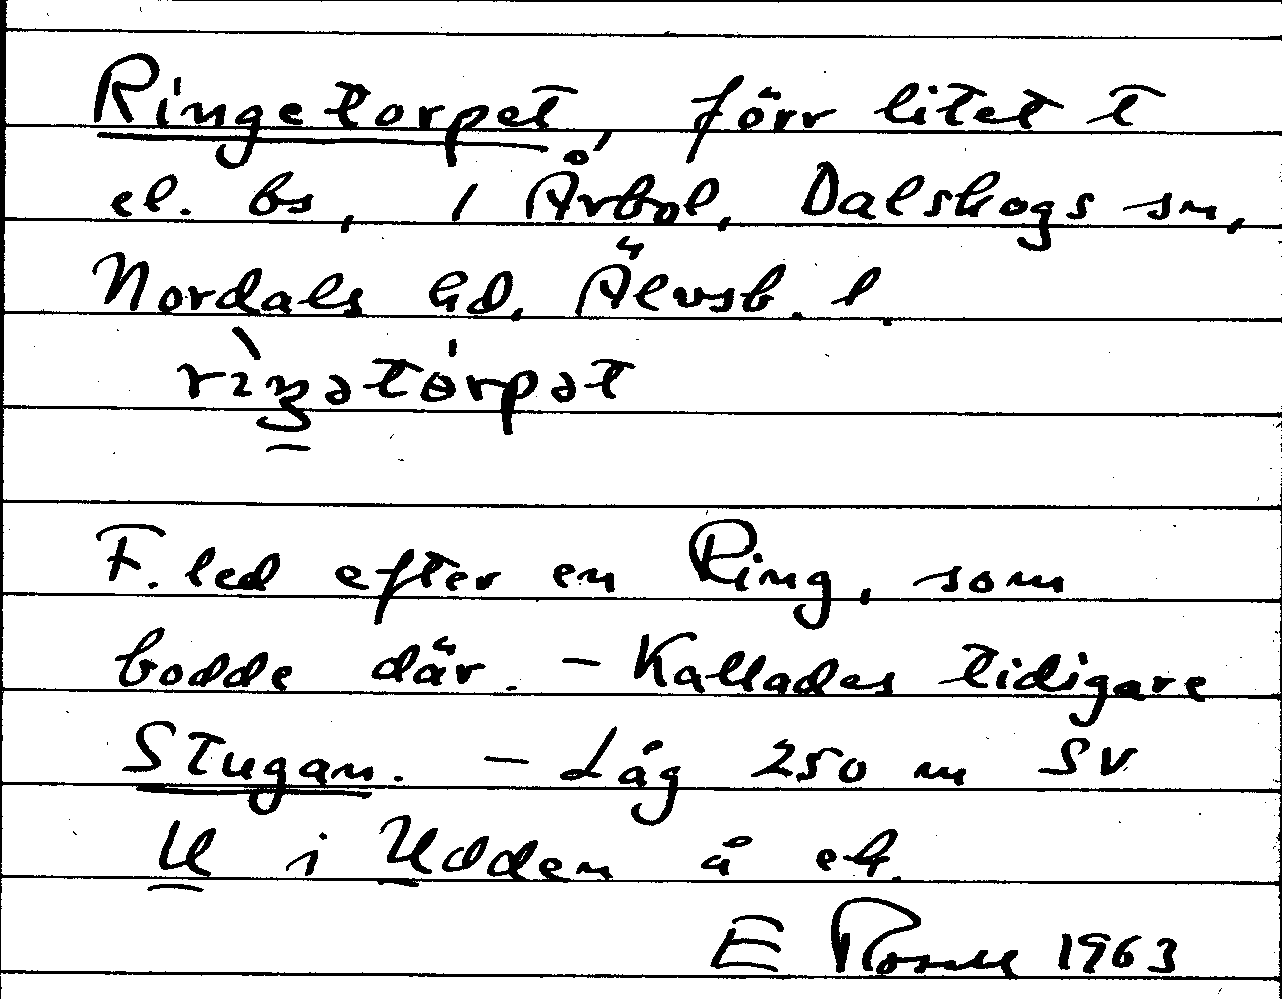 Ringetorpet, förr litet t
el. bs, i Årbol, Dalskogs sn,
Nordals hd, Älvsb. l.
rìŋətórpət
F. led efter en Ring, som
bodde där. – Kallades tidigare
Stugan. – Låg 250 m SV
U i Udden å ek.
E Rosell 1963